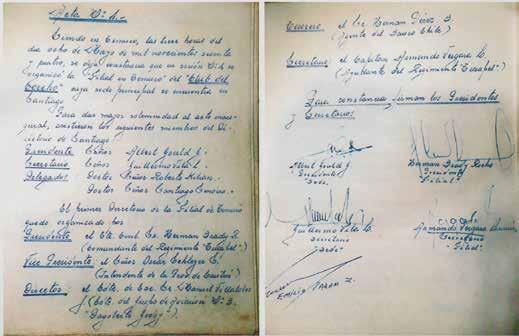 Acta Nº Uno
Siendo en Temuco, las trece horas del
dia ocho de Mayo de mil novecientos sesenta
y cuatro, se deja constancia que en sesión Nº 1 se
organizó la "Filial en Temuco" del "Club del
cuya sede principal se encuentra en
Santiago
Para dar mayor solemnidad al acto inau-
gural, asistieron los siguientes miembros del Di-
rectorio de Santiago:
Presidente Señor Albert Gould
Secretario Señor Guillermo Vidal
Delegados Doctor Señor Roberto Kilian.
Doctor Señor Santiago
El primer Directorio de la Filial de Temuco
quedó organizado por
Presidente el Cte. Crel. Sr. Herman Brady R.
(Comandante del Regimiento "Tucapel")
Vice Presidente: el Señor Oscar Schleyer
(Intendente de la Prov. de Cautín)
Director: el Cdte. de Esc. Sr. Manuel
(Cdte. del Grupo de Aviación Nº 3.
"Dagoberto Godoy")
Tesorero, el Sr. Hernan
(Agente del Banco Chile)
Secretario: el Capitan Armando Vergara
(Ayudante del Regimiento "Tucapel")
Para constancia firman los Presidentes
y Secretarios
Albert Gould
Presidente
Sede.
Herman Brady Roche
Presidente
Filial
Guillermo Vidal
Secretario
Sede
Armando Vergara
Secretario
Filial
Emilio